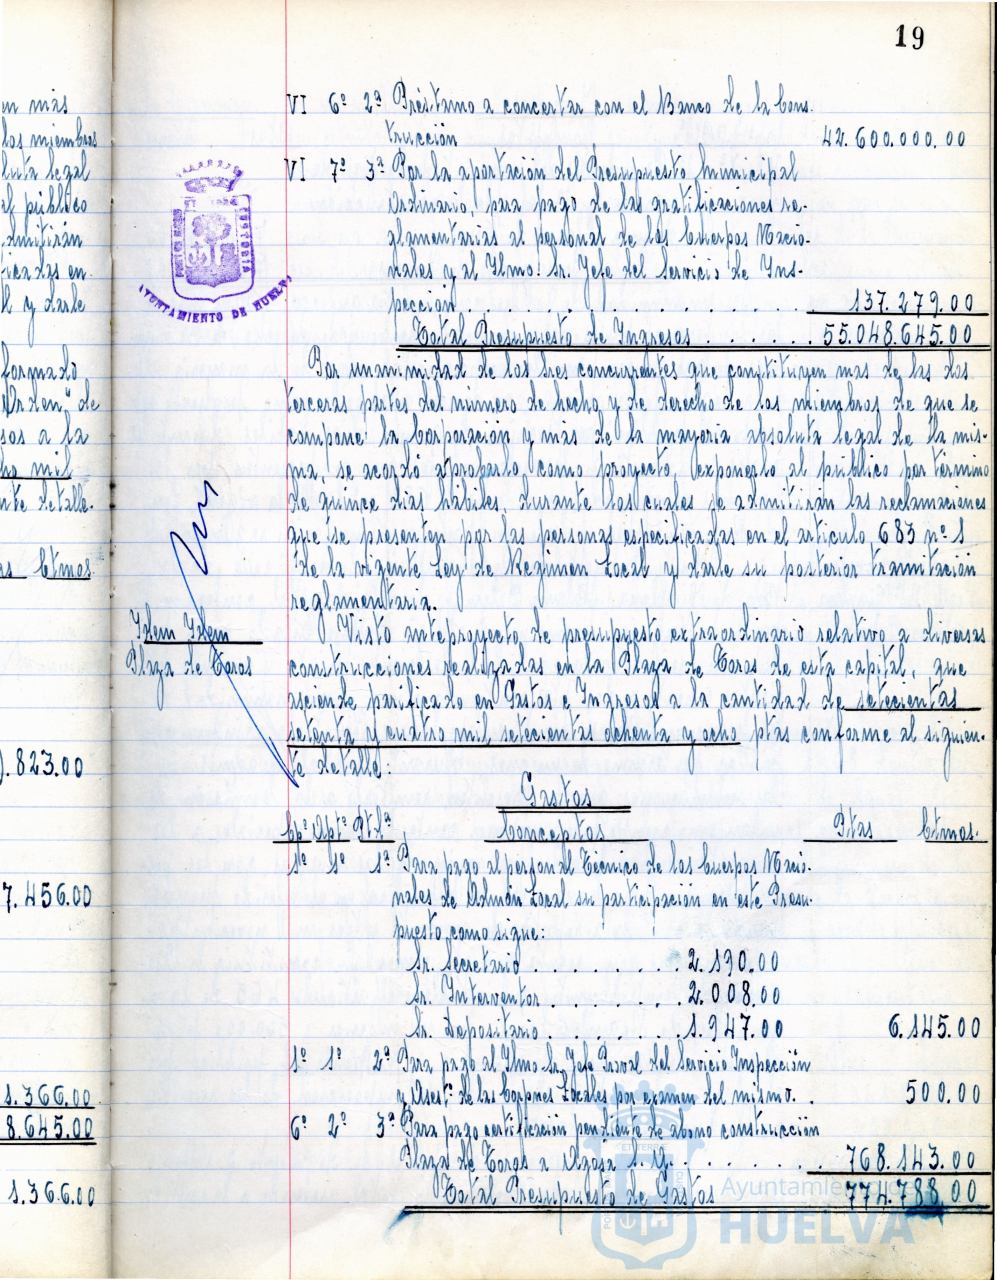 19
en más
los miembros
luta legal
al público
dmitirán
ficadas en
l y darle
formado
Orden" de
sos a la
cho mil
nte detalle.
as Ctmos
).823.00
7.456.00
1.366.00
8.645.00
1.366.00
AYUNTAMIENTO DE HUELVA
VI 6º 2ª Préstamo a concertar con el Banco de la Cons-
trucción 42.600.000.00
VI 7º 3ª Por la aportación del Presupuesto Municipal
Ordinario, para pago de las gratificaciones re-
glamentarias al personal de los Cuerpos Nacio-
nales y al Ilmo. Sr. Jefe del Servicio de Ins-
pección . . . . . . . . . 137.279.00
Total Presupuesto de Ingresos . . . . . . 55.048.645.00
Por unanimidad de los Sres concurrentes que constituyen mas de las dos
terceras partes del número de hecho y de derecho de los miembros de que se
compone la Corporación y más de la mayoría absoluta legal de la mis-
ma, se acordó aprobarlo como proyecto, exponerlo al público por término
de quince días hábiles, durante los cuales se admitirán las reclamaciones
que se presenten por las personas especificadas en el artículo 683 nº 1
de la vigente Ley de Régimen Local y darle su posterior tramitación
reglamentaria.
Idem Idem
Plaza de Toros
Visto anteproyecto de presupuesto extraordinario relativo a diversas
construcciones realizadas en la Plaza de Toros de esta capital, que
asciende parificado en Gastos e Ingresos a la cantidad de setecientas
setenta y cuatro mil setecientas ochenta y ocho ptas conforme al siguien-
te detalle:
Gastos
Cpº Artº Ptdª Conceptos Ptas Ctmos.
1º 1º 1ª Para pago al personal Técnico de los Cuerpos Nacio-
nales de Admón Local su participación en este Presu-
puesto como sigue:
Sr. Secretario . . . . . . . 2.190.00
Sr. Interventor . . . . . . 2.008.00
Sr. Depositario . . . . . . 1.947.00 6.145.00
1º 1º 2ª Para pago al Ilmo Sr. Jefe Proval del Servicio Inspección
y Asestº de las Corpnes Locales por examen del mismo. . 500.00
6º 2º 3ª Para pago certificación pendiente de abono construcción
Plaza de Toros a S. A. . . . . . . 768.143.00
Total Presupuesto de Gastos 774.788.00
Ayuntamiento de
HUELVA